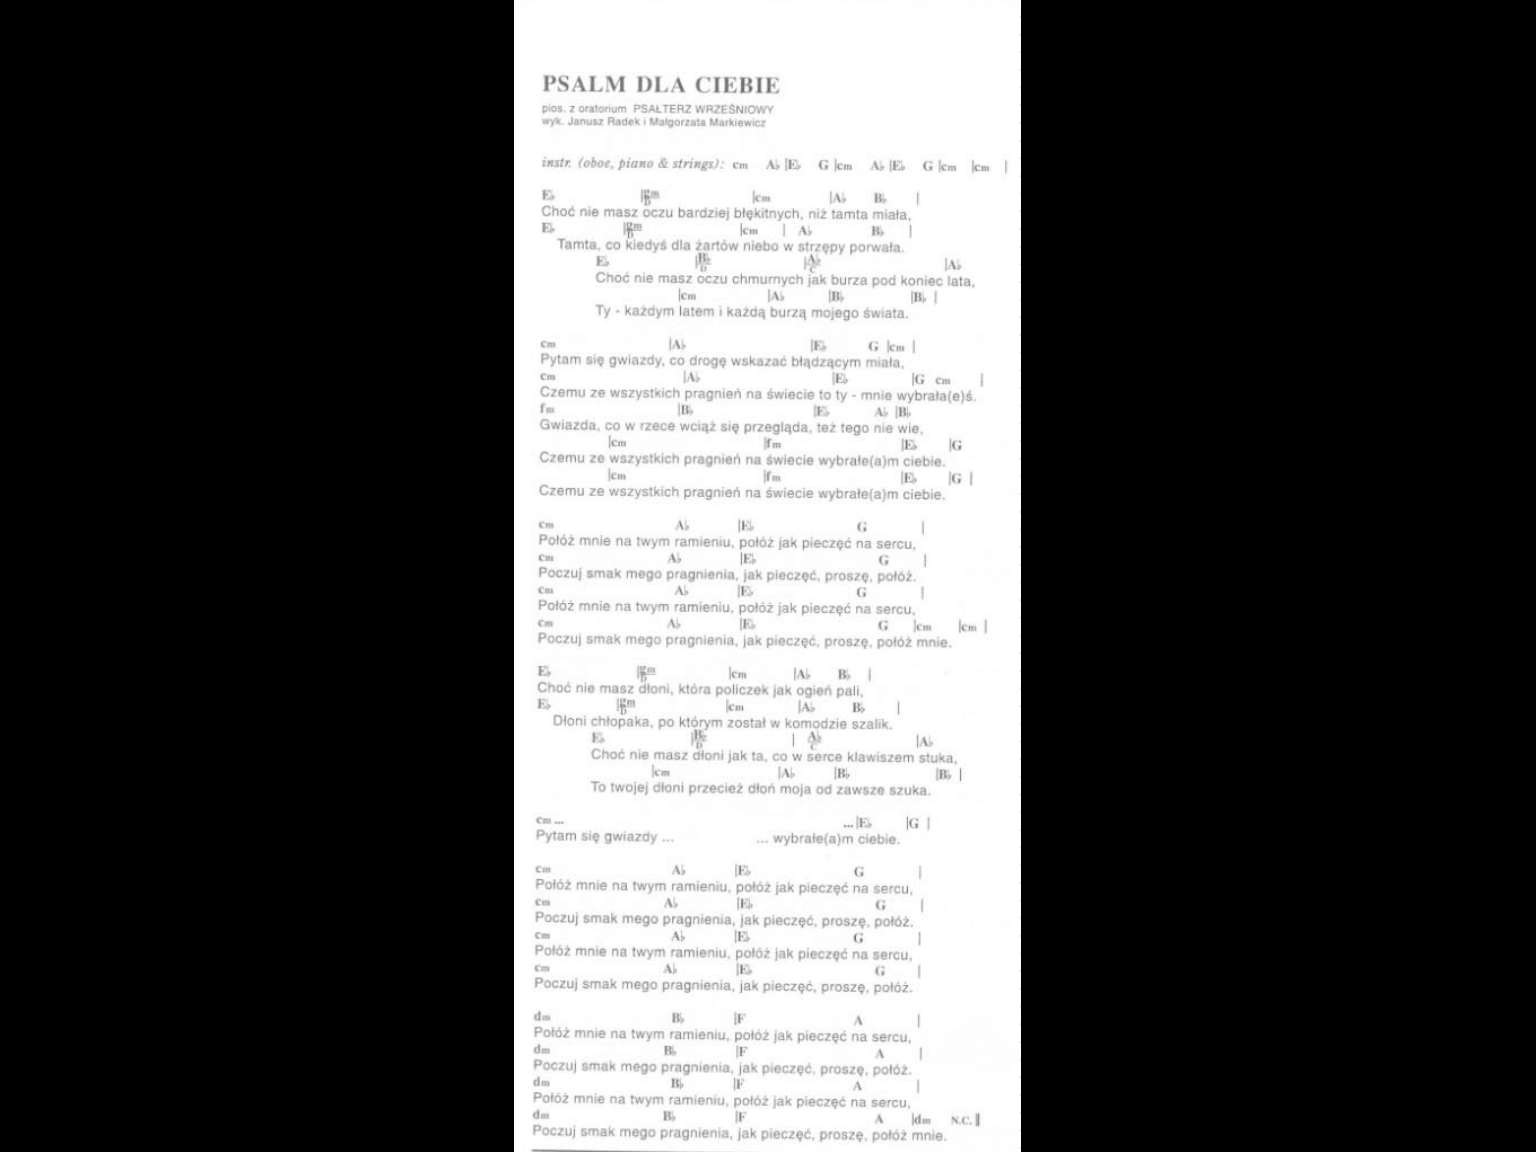 PSALM DLA CIEBIE
pios. z oratorium PSAŁTERZ WRZEŚNIOWY
wyk. Janusz Radek i Małgorzata Markiewicz
instr. (oboe, piano & strings): cm A♭ |E♭ G |cm A♭ |E♭ G |cm |cm |
E♭ |gm/D |cm |A♭ B♭ |
Choć nie masz oczu bardziej błękitnych, niż tamta miała,
E♭ |gm/D |cm | A♭ B♭ |
Tamta, co kiedyś dla żartów niebo w strzępy porwała.
E♭ |B♭/D |A♭/C |A♭
Choć nie masz oczu chmurnych jak burza pod koniec lata,
|cm |A♭ |B♭ |B♭ |
Ty - każdym latem i każdą burzą mojego świata.
cm |A♭ |E♭ G |cm |
Pytam się gwiazdy, co drogę wskazać błądzącym miała,
cm |A♭ |E♭ |G cm |
Czemu ze wszystkich pragnień na świecie to ty - mnie wybrała(e)ś.
fm |B♭ |E♭ A♭ |B♭
Gwiazda, co w rzece wciąż się przegląda, też tego nie wie,
|cm |fm |E♭ |G
Czemu ze wszystkich pragnień na świecie wybrałe(a)m ciebie.
|cm |fm |E♭ |G |
Czemu ze wszystkich pragnień na świecie wybrałe(a)m ciebie.
cm A♭ |E♭ G |
Połóż mnie na twym ramieniu, połóż jak pieczęć na sercu,
cm A♭ |E♭ G |
Poczuj smak mego pragnienia, jak pieczęć, proszę, połóż.
cm A♭ |E♭ G |
Połóż mnie na twym ramieniu, połóż jak pieczęć na sercu,
cm A♭ |E♭ G |cm |cm |
Poczuj smak mego pragnienia, jak pieczęć, proszę, połóż mnie.
E♭ |gm/D |cm |A♭ B♭ |
Choć nie masz dłoni, która policzek jak ogień pali,
E♭ |gm/D |cm |A♭ B♭ |
Dłoni chłopaka, po którym został w komodzie szalik.
E♭ |B♭/D | A♭/C |A♭
Choć nie masz dłoni jak ta, co w serce klawiszem stuka,
|cm |A♭ |B♭ |B♭ |
To twojej dłoni przecież dłoń moja od zawsze szuka.
cm ... ... |E♭ |G |
Pytam się gwiazdy ... ... wybrałe(a)m ciebie.
cm A♭ |E♭ G |
Połóż mnie na twym ramieniu, połóż jak pieczęć na sercu,
cm A♭ |E♭ G |
Poczuj smak mego pragnienia, jak pieczęć, proszę, połóż.
cm A♭ |E♭ G |
Połóż mnie na twym ramieniu, połóż jak pieczęć na sercu,
cm A♭ |E♭ G |
Poczuj smak mego pragnienia, jak pieczęć, proszę, połóż.
dm B♭ |F A |
Połóż mnie na twym ramieniu, połóż jak pieczęć na sercu,
dm B♭ |F A |
Poczuj smak mego pragnienia, jak pieczęć, proszę, połóż.
dm B♭ |F A |
Połóż mnie na twym ramieniu, połóż jak pieczęć na sercu,
dm B♭ |F A |dm N.C. ‖
Poczuj smak mego pragnienia, jak pieczęć, proszę, połóż mnie.